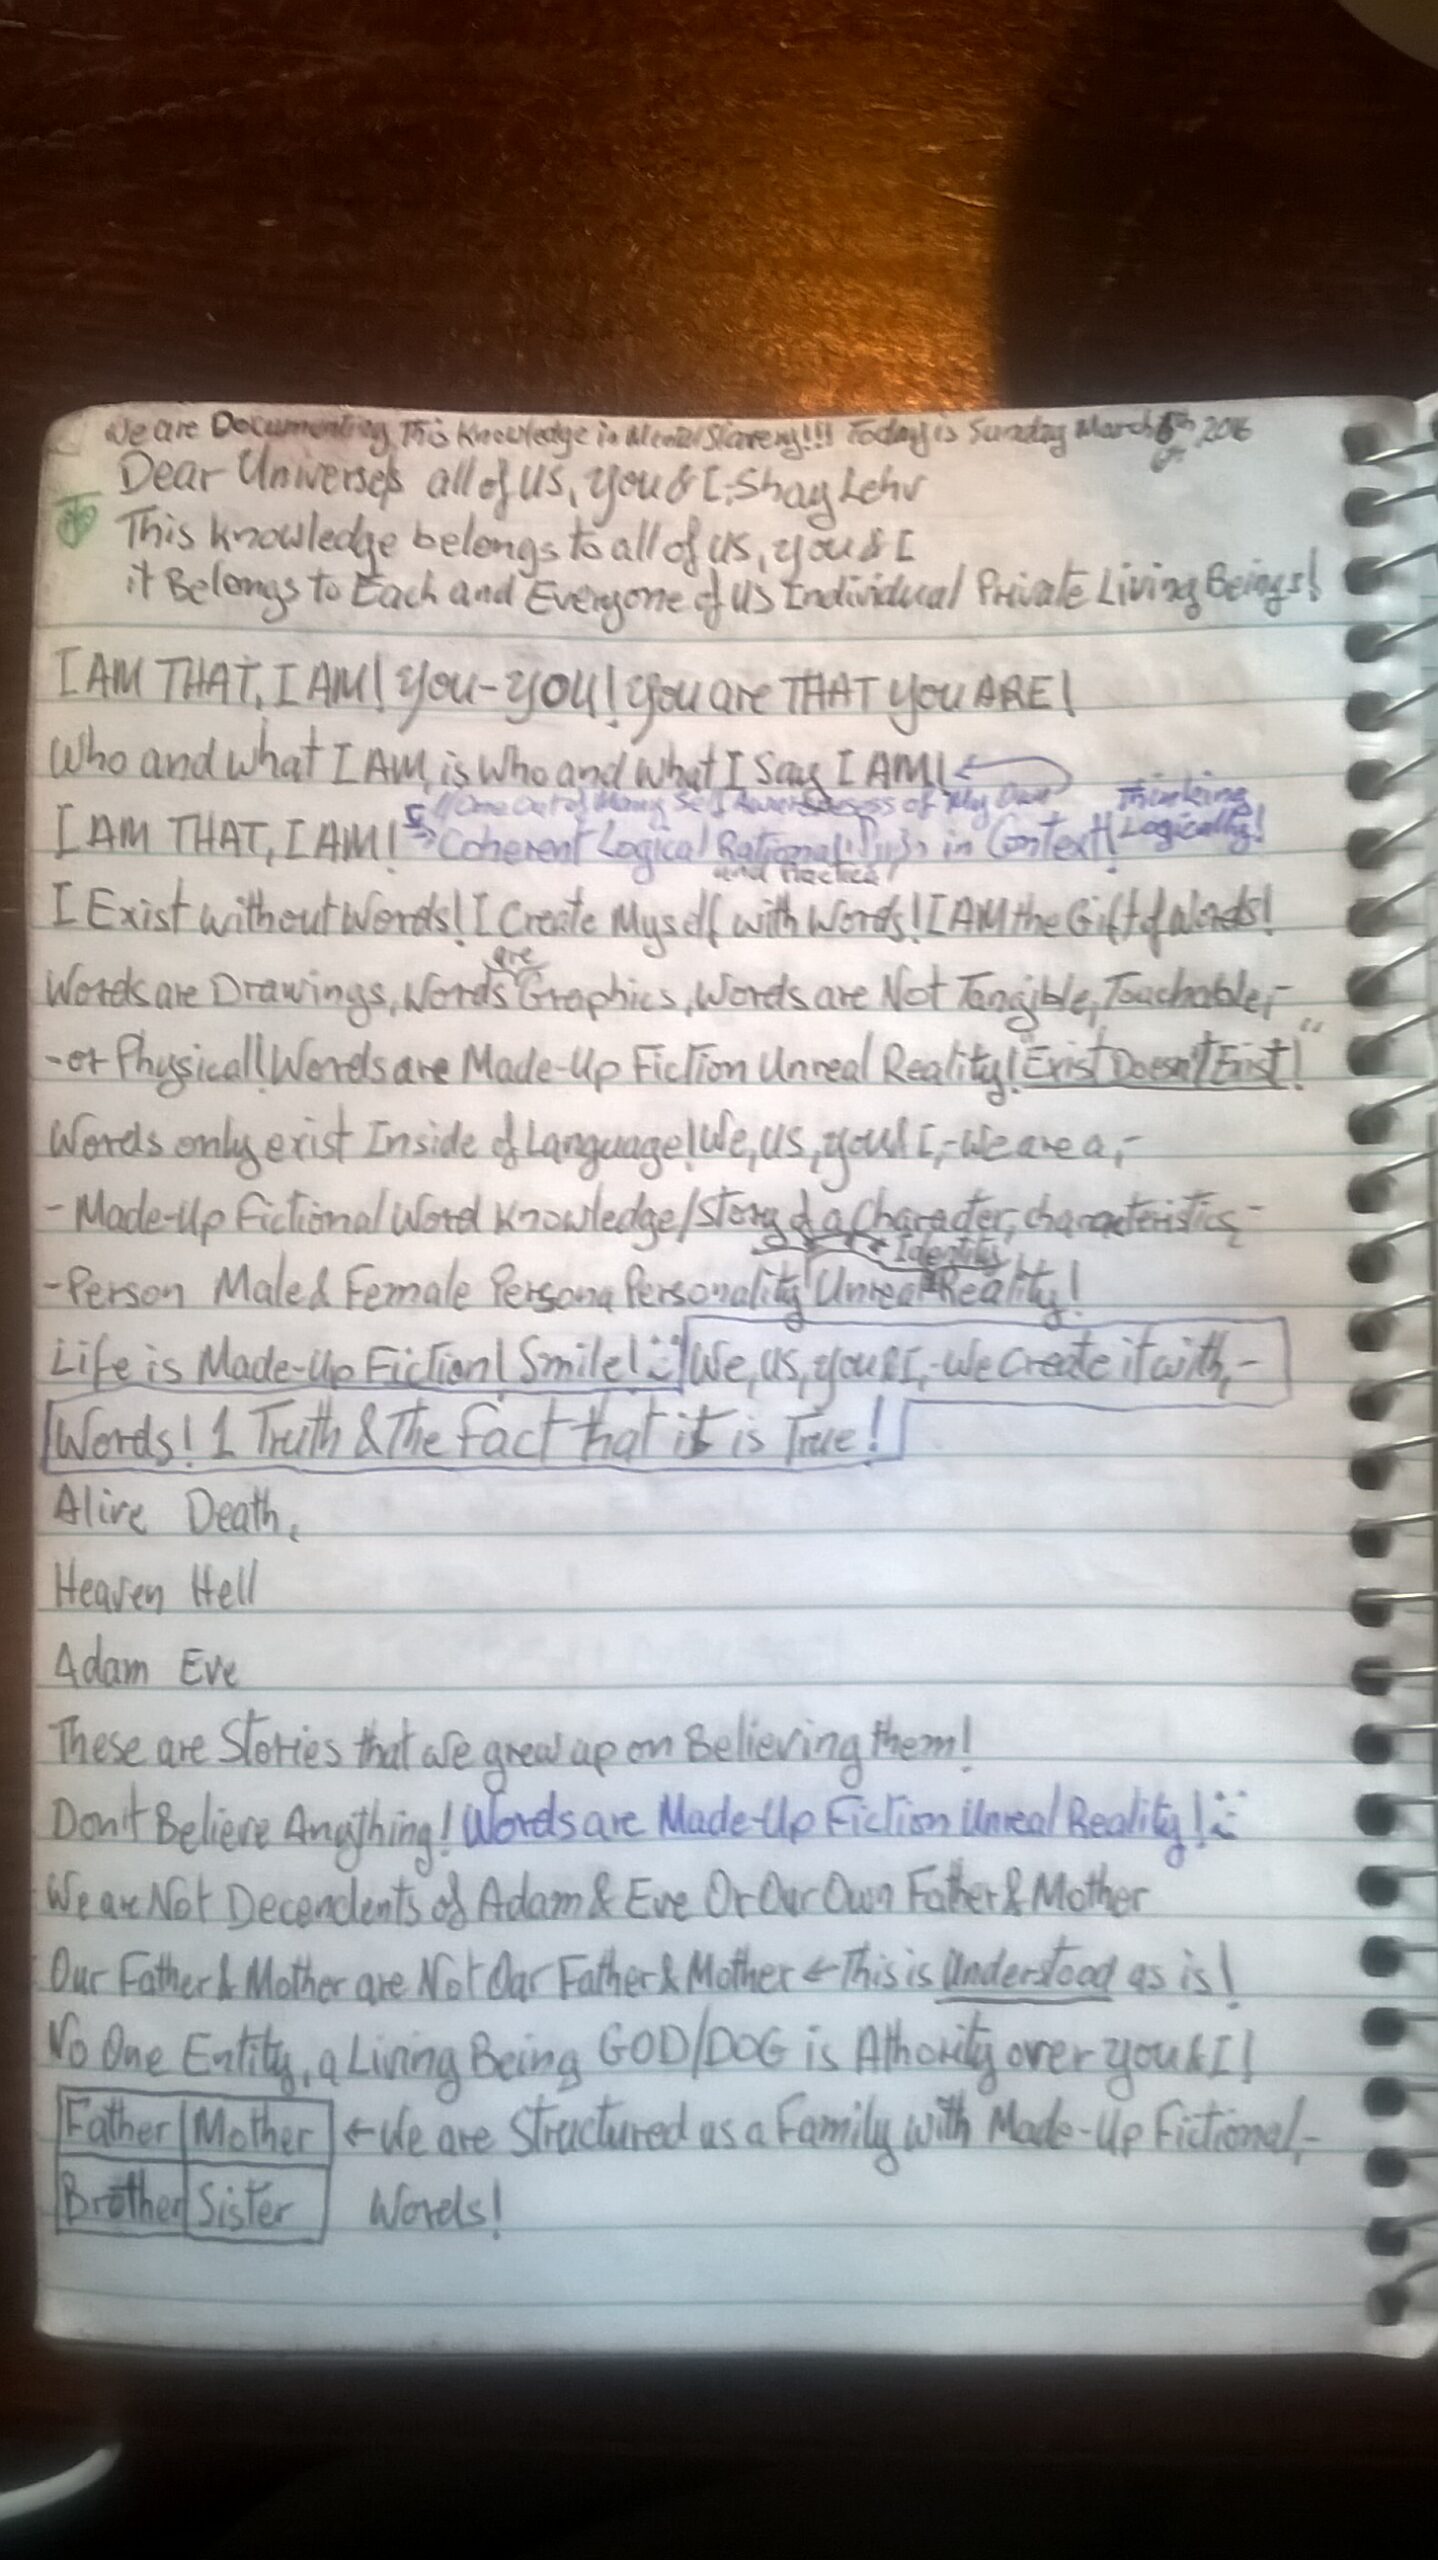 We are Documenting This Knowledge in Mental Slavery!!! Today is Sunday March 6th 2016
Dear Universe, all of us, you & I, Shay Lehr
This knowledge belongs to all of us, you & I
it Belongs to Each and Everyone of us Individual Private Living Beings!
I AM THAT, I AM! you-you! you are THAT you ARE!
Who and what I AM, is Who and what I Say I AM!
One Out of Many Self Awareness of My Own Thinking
I AM THAT, I AM! Coherent Logical Rational in Context! Logically!
and Practical
I Exist without Words! I Create Myself with Words! I AM the Gift of Words!
are
Words are Drawings, Words Graphics, Words are Not Tangible, Touchable,-
-or Physical! Words are Made-Up Fiction Unreal Reality! "Exist Doesn't Exist!"
Words only exist Inside of Language! We, us, you & I,-We are a,-
- Made-Up Fictional Word Knowledge/Story of a Character, characteristics,-
Identity
-Person Male & Female Persona Personality Unreal Reality!
Life is Made-Up Fiction! Smile! :) We, us, you & I,-We Create it with,-
Words! 1 Truth & The Fact that it is True!
Alive Death,
Heaven Hell
Adam Eve
These are Stories that we grew up on Believing them!
Don't Believe Anything! Words are Made-Up Fiction Unreal Reality! :)
We are Not Decendents of Adam & Eve Or Our Own Father & Mother
Our Father & Mother are Not Our Father & Mother ← This is Understood as is!
No One Entity, a Living Being GOD/DOG is Athority over you & I!
Father Mother ← We are Structured as a Family with Made-Up Fictional,-
Brother Sister Words!